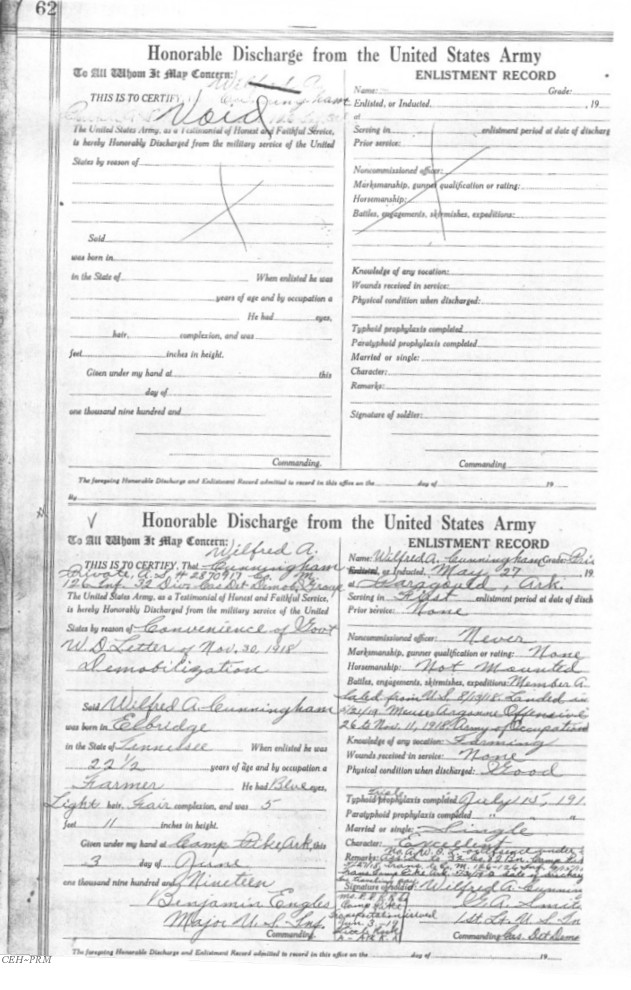 62
Honorable Discharge from the United States Army
To All Whom It May Concern:
Wilfred A.
THIS IS TO CERTIFY, Cunningham
Void
The United States Army, as a Testimonial of Honest and Faithful Service,
is hereby Honorably Discharged from the military service of the United
States by reason of
Said
was born in
in the State of When enlisted he was
years of age and by occupation a
He had eyes,
hair, complexion, and was
feet inches in height.
Given under my hand at this
day of
one thousand nine hundred and
Commanding.
ENLISTMENT RECORD
Name: Grade:
Enlisted, or Inducted, , 19
at
Serving in enlistment period at date of discharg
Prior service:
Noncommissioned officer:
Marksmanship, gunner qualification or rating:
Horsemanship:
Battles, engagements, skirmishes, expeditions:
Knowledge of any vocation:
Wounds received in service:
Physical condition when discharged:
Typhoid prophylaxis completed
Paratyphoid prophylaxis completed
Married or single:
Character:
Remarks:
Signature of soldier:
Commanding
The foregoing Honorable Discharge and Enlistment Record admitted to record in this office on the day of 19
By
Honorable Discharge from the United States Army
To All Whom It May Concern:
Wilfred A.
THIS IS TO CERTIFY, That Cunningham
Private, A.S. # 2870917 Co. M
126 Inf. 32 Div. Cas Det Demob. Group
The United States Army, as a Testimonial of Honest and Faithful Service,
is hereby Honorably Discharged from the military service of the United
States by reason of Convenience of Govt
W.D. Letter of Nov. 30, 1918
Demobilization
Said Wilfred A. Cunningham
was born in Elbridge
in the State of Tennessee When enlisted he was
22 1/2 years of age and by occupation a
Farmer He had Blue eyes,
Light hair, Fair complexion, and was 5
feet 11 inches in height.
Given under my hand at Camp Pike Ark, this
3 day of June
one thousand nine hundred and Nineteen
Benjamin Engles
Major U.S. Inf.
Commanding.
ENLISTMENT RECORD
Name: Wilfred A. Cunningham Grade: Pri
Enlisted, or Inducted, May 27 19
at Paragould, Ark.
Serving in First enlistment period at date of disch
Prior service: None
Noncommissioned officer: Never
Marksmanship, gunner qualification or rating: None
Horsemanship: Not Mounted
Battles, engagements, skirmishes, expeditions: Member A.
Sailed from U.S. 8/13/18. Landed in
Meuse Argonne Offensive
26 to Nov. 11, 1918. Army of Occupation
Knowledge of any vocation: Farming
Wounds received in service: None
Physical condition when discharged: Good
Typhoid prophylaxis completed July 15, 191
Paratyphoid prophylaxis completed " "
Married or single: Single
Character: Excellent
Remarks:
Signature of soldier: Wilfred A. Cunnin
Camp Pike
Jun 3 - 19
Little Rock
1st Lt. U.S. In
Commanding Cas. Det Demo
The foregoing Honorable Discharge and Enlistment Record admitted to record in this office on the day of 19
CEH~PRM